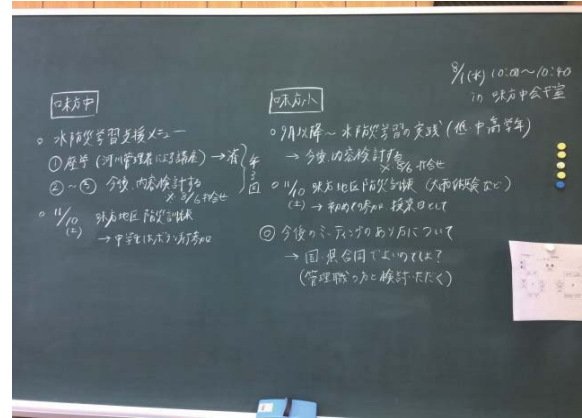 8/1(水) 10:00〜10:40
in 味方中会議室
味方中
○ 水防災学習支援メニュー
① 座学(河川管理者による講座) →
②〜③ 今後、内容検討する
× 8/6 打合せ
全3回
○ 11/10 味方地区防災訓練
(土) → 中学生はボラ 参加
味方小
○ 9月以降〜水防災学習の実践(低・中高学年)
→ 今後、内容検討する
× 8/6 打合せ
○ 11/10 味方地区防災訓練(大雨体験など)
(土) → 初めての参加 授業日として
◎ 今後のミーティングのあり方について
→ 国・県合同でよいのでは?
(管理職の方と検討いただく)